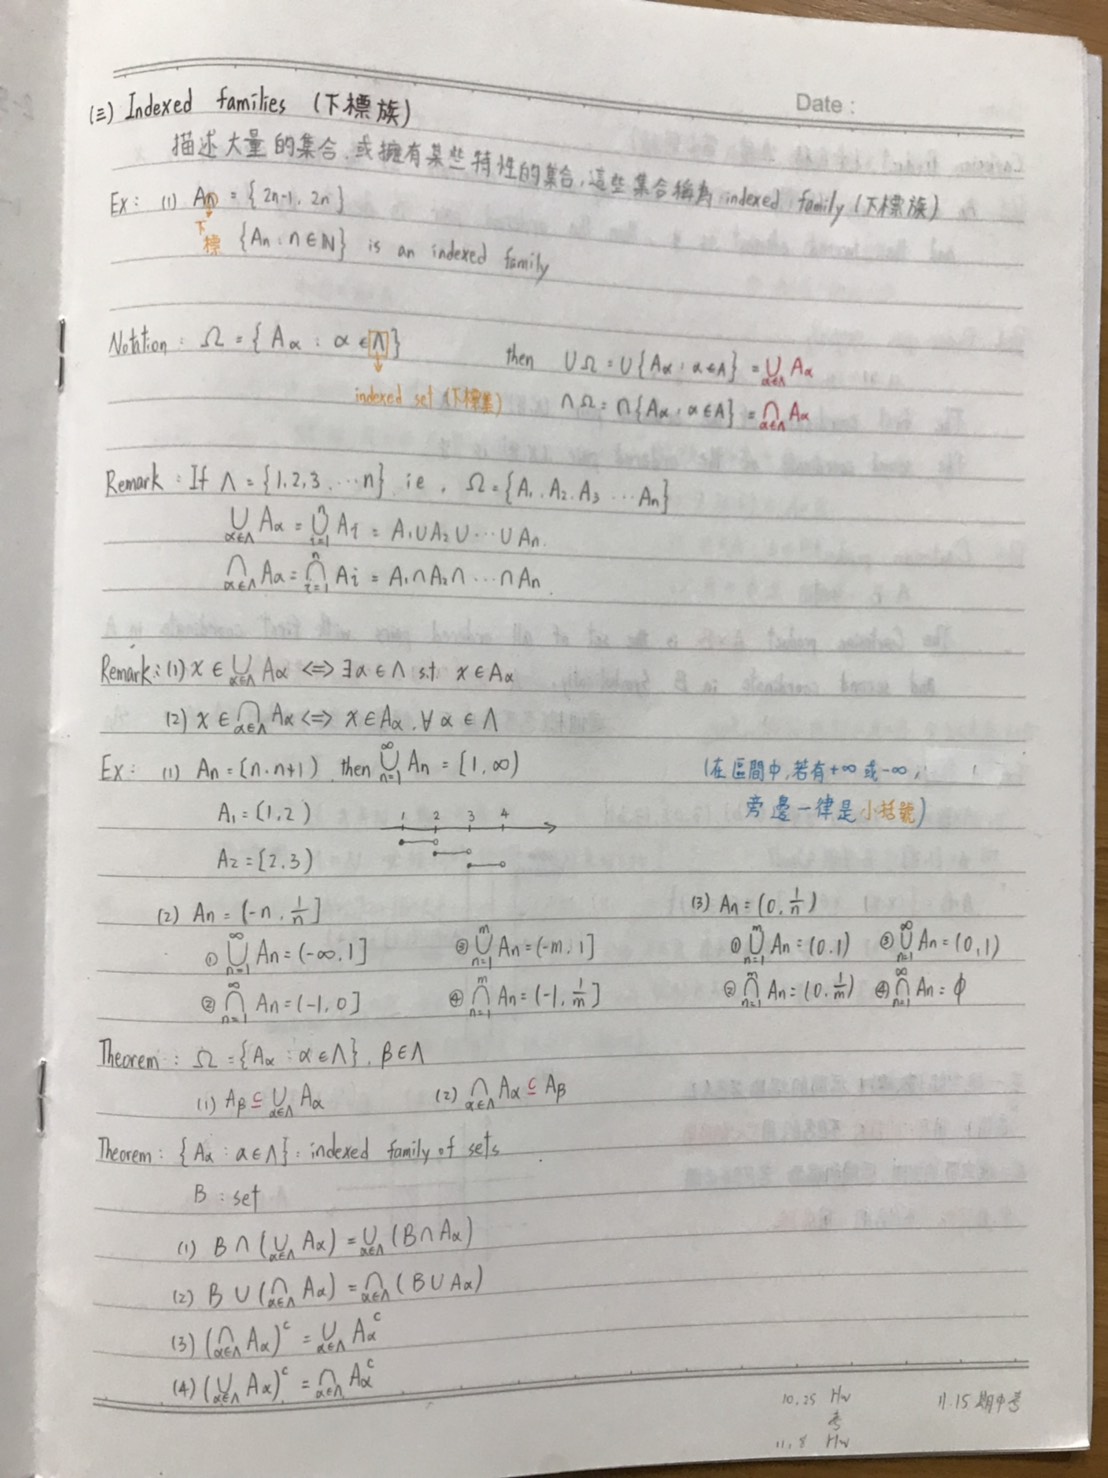 Date :
(三) Indexed families (下標族)
描述大量的集合,或擁有某些特性的集合,這些集合稱為 indexed family (下標族)
Ex: (1) An = {2n-1, 2n}
下標 {An : n∈ℕ} is an indexed family
Notation : Ω = {Aα : α∈Λ} then ∪Ω = ∪{Aα : α∈Λ} = ∪α∈Λ Aα
indexed set (下標集) ∩Ω = ∩{Aα : α∈Λ} = ∩α∈Λ Aα
Remark : If Λ = {1,2,3 … n} ie, Ω = {A1, A2, A3 … An}
∪α∈Λ Aα = ∪i=1^n Ai = A1∪A2∪…∪An.
∩α∈Λ Aα = ∩i=1^n Ai = A1∩A2∩…∩An
Remark : (1) x∈∪α∈Λ Aα <=> ∃α∈Λ s.t. x∈Aα
(2) x∈∩α∈Λ Aα <=> x∈Aα, ∀α∈Λ
Ex: (1) An = [n, n+1), then ∪n=1^∞ An = [1,∞) (在區間中,若有+∞或-∞,
A1 = [1,2) 1 2 3 4 旁邊一律是小括號)
A2 = [2,3)
(2) An = (-n, 1/n] (3) An = (0, 1/n)
① ∪n=1^∞ An = (-∞,1] ③ ∪n=1^m An = (-m,1] ① ∪n=1^m An = (0,1) ③ ∪n=1^∞ An = (0,1)
② ∩n=1^∞ An = (-1,0] ④ ∩n=1^m An = (-1, 1/m] ② ∩n=1^m An = (0, 1/m) ④ ∩n=1^∞ An = ϕ
Theorem : Ω = {Aα : α∈Λ}, β∈Λ
(1) Aβ ⊆ ∪α∈Λ Aα (2) ∩α∈Λ Aα ⊆ Aβ
Theorem : {Aα : α∈Λ} : indexed family of sets
B : set
(1) B∩(∪α∈Λ Aα) = ∪α∈Λ (B∩Aα)
(2) B∪(∩α∈Λ Aα) = ∩α∈Λ (B∪Aα)
(3) (∩α∈Λ Aα)^c = ∪α∈Λ Aα^c
(4) (∪α∈Λ Aα)^c = ∩α∈Λ Aα^c
10.25 Hw 11.15 期中考
考
11.8 Hw